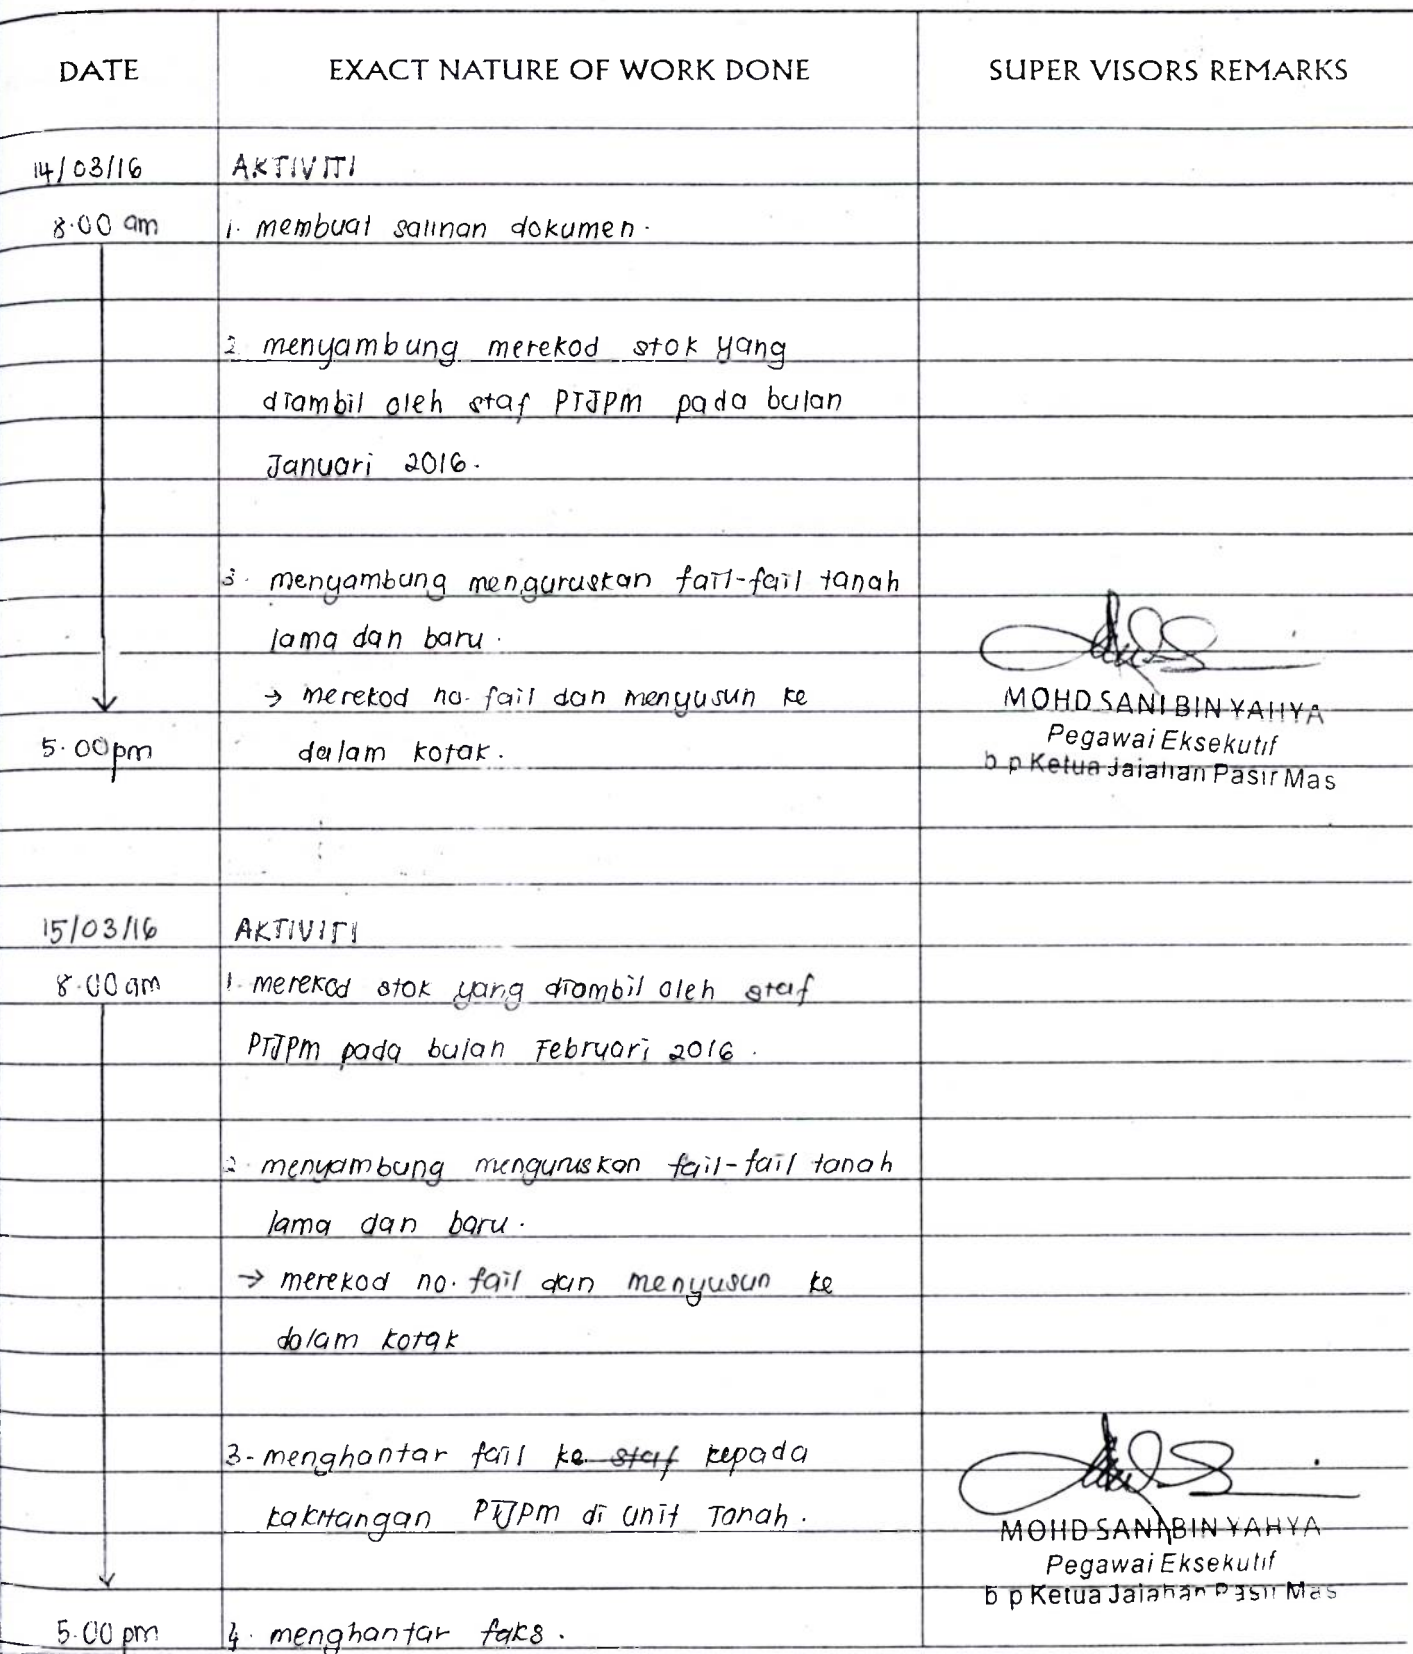 DATE EXACT NATURE OF WORK DONE SUPER VISORS REMARKS
14/03/16 AKTIVITI
8.00 am 1. membuat salinan dokumen.
2. menyambung merekod stok yang
diambil oleh staf PTJPM pada bulan
Januari 2016.
3. menyambung menguruskan fail-fail tanah
lama dan baru.
→ merekod no. fail dan menyusun ke
MOHD SANI BIN YAHYA
5.00pm dalam kotak.
Pegawai Eksekutif
b p Ketua Jajahan Pasir Mas
15/03/16 AKTIVITI
8.00 am 1. merekod stok yang diambil oleh staf
PTJPM pada bulan Februari 2016.
2. menyambung menguruskan fail-fail tanah
lama dan baru.
→ merekod no. fail dan menyusun ke
dalam kotak
3- menghantar fail ke staf kepada
kakitangan PTJPM di unit Tanah.
MOHD SANI BIN YAHYA
Pegawai Eksekutif
b p Ketua Jajahan Pasir Mas
5.00 pm 4. menghantar faks.